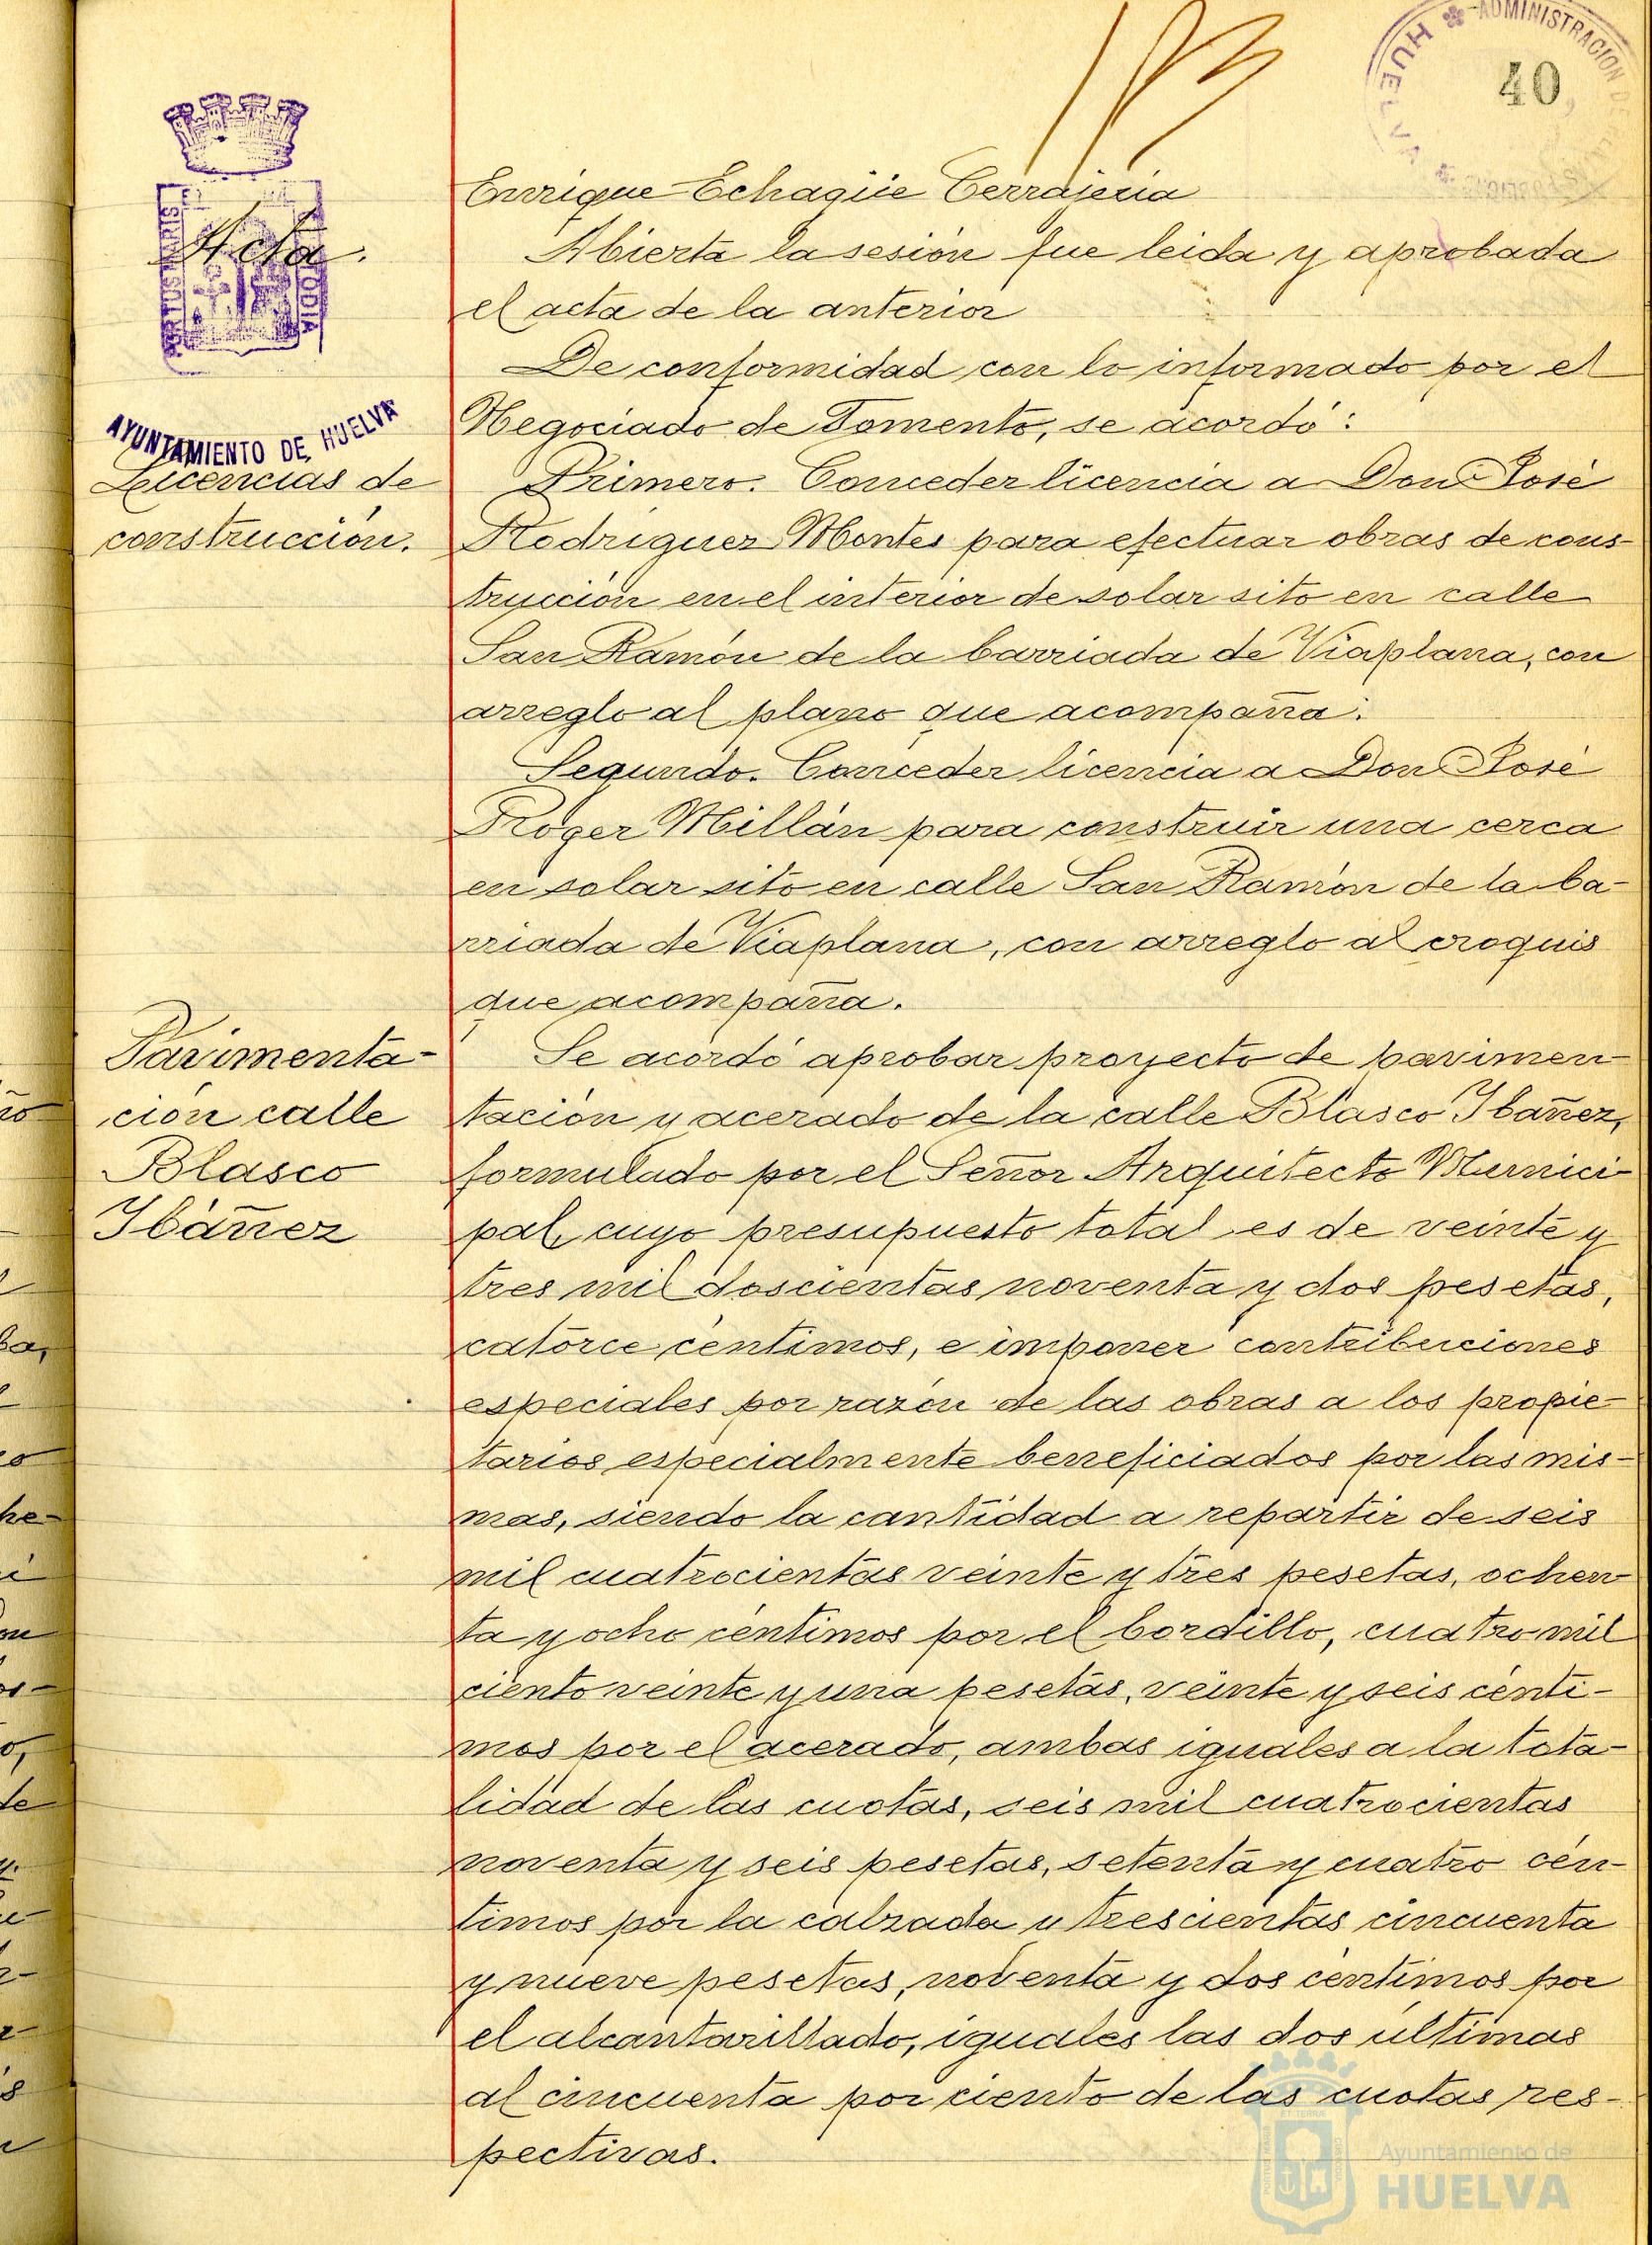 40
HUELVA ADMINISTRACION
Enrique Echagüe Cerrajeria
Acta.
Abierta la sesión fue leida y aprobada
el acta de la anterior
De conformidad con lo informado por el
Negociado de Fomento, se acordó:
AYUNTAMIENTO DE HUELVA
Licencias de
construcción.
Primero. Conceder licencia a Don José
Rodriguez Montes para efectuar obras de cons-
trucción en el interior de solar sito en calle
San Ramón de la barriada de Viaplana, con
arreglo al plano que acompaña.
Segundo. Conceder licencia a Don José
Roger Millán para construir una cerca
en solar sito en calle San Ramón de la ba-
rriada de Viaplana, con arreglo al croquis
que acompaña.
Pavimenta-
ción calle
Blasco
Ibáñez
Se acordó aprobar proyecto de pavimen-
tación y acerado de la calle Blasco Ibañez,
formulado por el Señor Arquitecto Munici-
pal, cuyo presupuesto total es de veinte y
tres mil doscientas noventa y dos pesetas,
catorce céntimos, e imponer contribuciones
especiales por razón de las obras a los propie-
tarios especialmente beneficiados por las mis-
mas, siendo la cantidad a repartir de seis
mil cuatrocientas veinte y tres pesetas, ochen-
ta y ocho céntimos por el bordillo, cuatro mil
ciento veinte y una pesetas, veinte y seis cénti-
mos por el acerado, ambas iguales a la tota-
lidad de las cuotas, seis mil cuatrocientas
noventa y seis pesetas, setenta y cuatro cén-
timos por la calzada y trescientas cincuenta
y nueve pesetas, noventa y dos céntimos por
el alcantarillado, iguales las dos últimas
al cincuenta por ciento de las cuotas res-
pectivas.
Ayuntamiento de
HUELVA